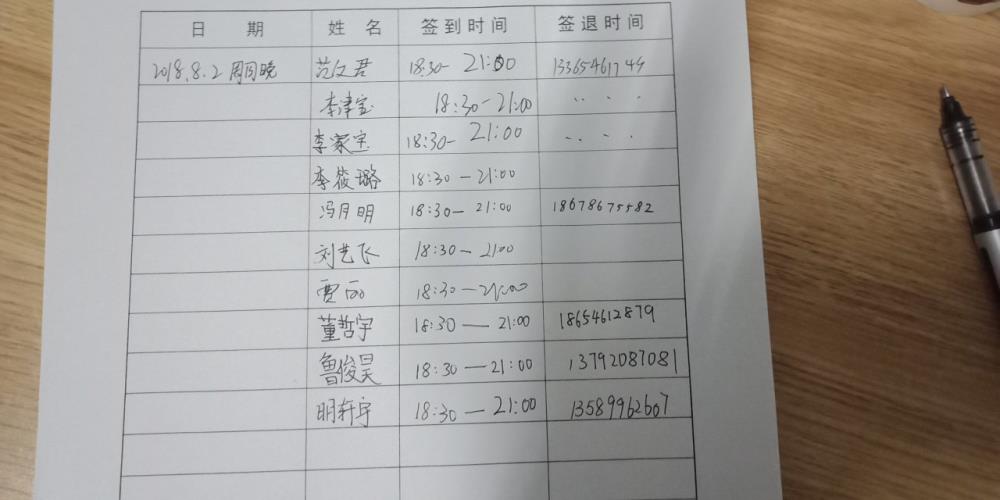 日 期 姓 名 签到时间 签退时间
2018.8.2 周四晚 范文君 18:30- 21:00 13365461749
李津宝 18:30-21:00 .. . .
李家宝 18:30- 21:00 .. . .
李筱璐 18:30-21:00
冯月明 18:30- 21:00 18678675582
刘艺飞 18:30- 21:00
贾丽 18:30-21:00
董哲宇 18:30 — 21:00 18654612879
鲁俊昊 18:30 — 21:00 13792087081
明轩宇 18:30 — 21:00 13589962607